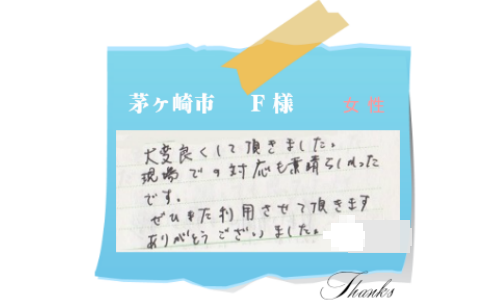 茅ヶ崎市 F様 女性
大変良くして頂きました。
現場での対応も素晴らしかった
です。
ぜひまた利用させて頂きます
ありがとうございました。
Thanks